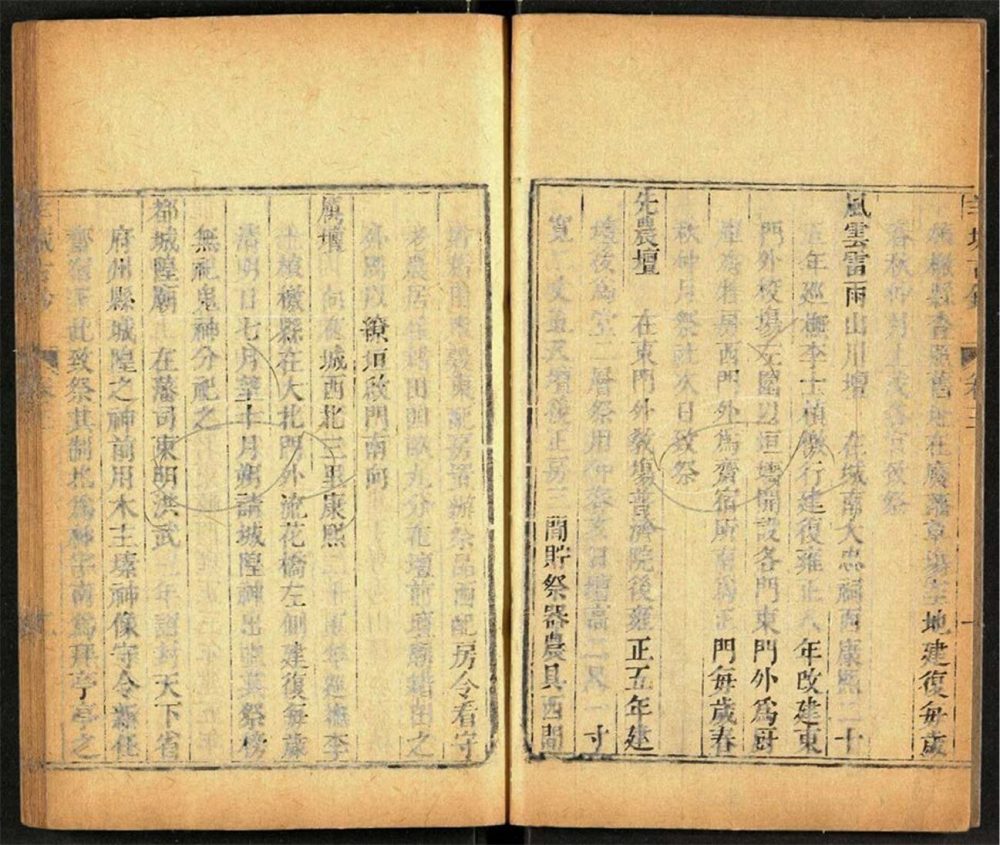 地建復每歲
春秋仲月上戊各官致祭
風雲雷雨山川壇 在城南大忠祠西康熙二十
五年巡撫李士楨檄行建復雍正六年改建東
門外校場左圍以垣墻開設各門東門外為厨
西門外為齋宿所南為正門每歲春
秋仲月祭社次日致祭
先農壇 在東門外教塲普濟院後雍正五年建
壇後為堂二層祭用仲春亥日壇高二尺一寸
寬二丈五尺壇後正房三間貯祭器農具西間
東配房置辦祭品西配房令看守
老農居住耤田四畝九分在壇前壇廟耤田之
外周以繚垣啟門南向
厲壇 向在城西北三里康熙二十五年巡撫李
士楨檄縣在大北門外流花橋左側建復每歲
清明日七月望十月朔請城隍神出壇其祭榜
無祀鬼神分配之
都城隍廟 在藩司東明洪武二年詔封天下省
府州縣城隍之神前用木主塐神像守令新任
齋宿於此致祭其制北為神宇南為拜亭亭之